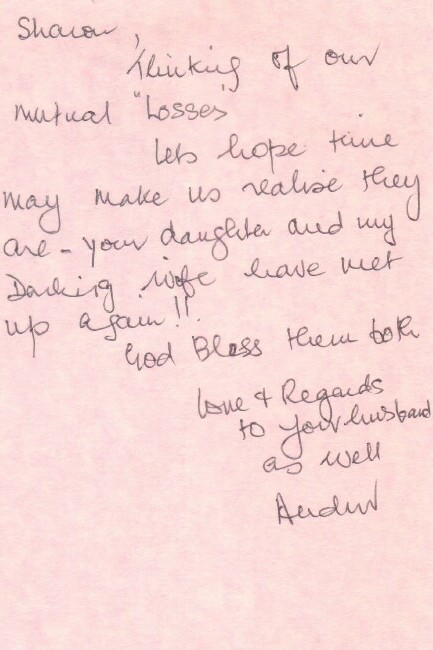 Sharon,
Thinking of our
mutual "Losses"
Lets hope time
may make us realise they
are - your daughter and my
Darling wife have met
up again!!
God Bless them both
Love & Regards
to your husband
as well